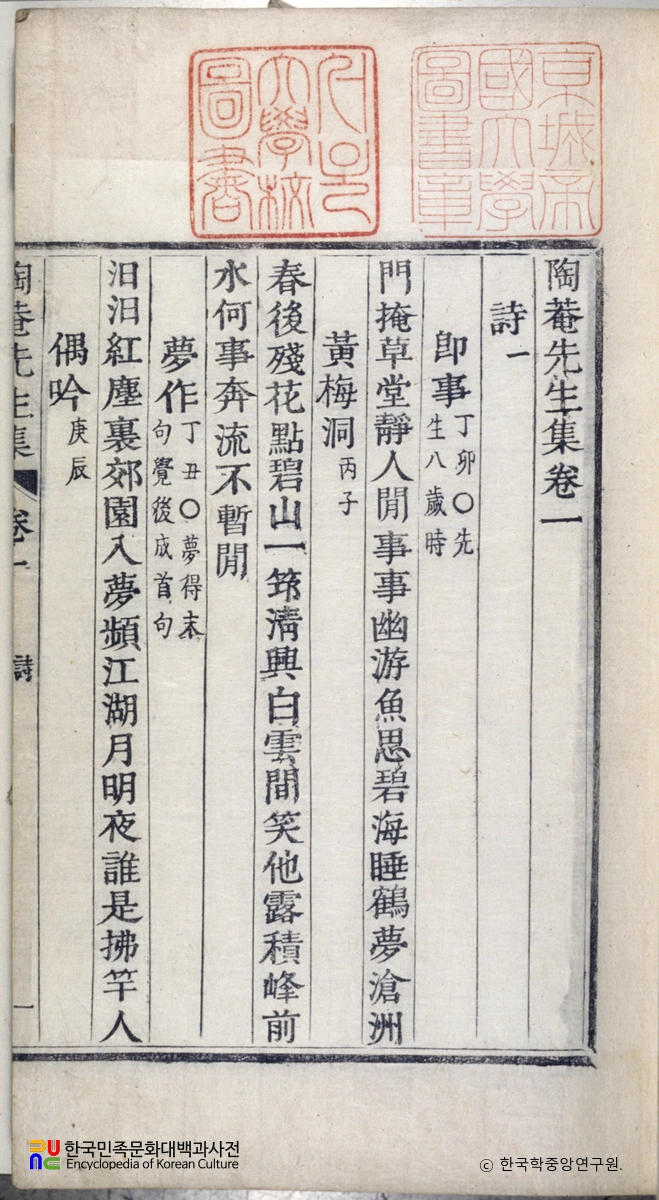 京城帝
國大學
圖書章
서울
大學校
圖書
陶菴先生集卷一
詩一
即事丁卯〇先
生八歲時
門掩草堂靜人閒事事幽游魚思碧海睡鶴夢滄洲
黃梅洞丙子
春後殘花點碧山一筇淸興白雲間笑他露積峰前
水何事奔流不暫閒
夢作丁丑〇夢得末
句覺後成首句
汨汨紅塵裏郊園入夢頻江湖月明夜誰是拂竿人
偶吟庚辰
陶菴先生集 卷一 詩 一
한국민족문화대백과사전
Encyclopedia of Korean Culture
© 한국학중앙연구원.